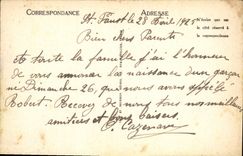 CORRESPONDANCE
ADRESSE
St Faust le 28 Avril 1925
N'écrire que sur
le côté réservé à
la correspondance
Bien chers Parents
A toute la famille j'ai l'honneur
de vous annoncer la naissance d'un garçon
né Dimanche 26, que nous avons appelé
Robert. Recevez de nous tous nos meilleures
amitiés et bons baisers
Cazenave